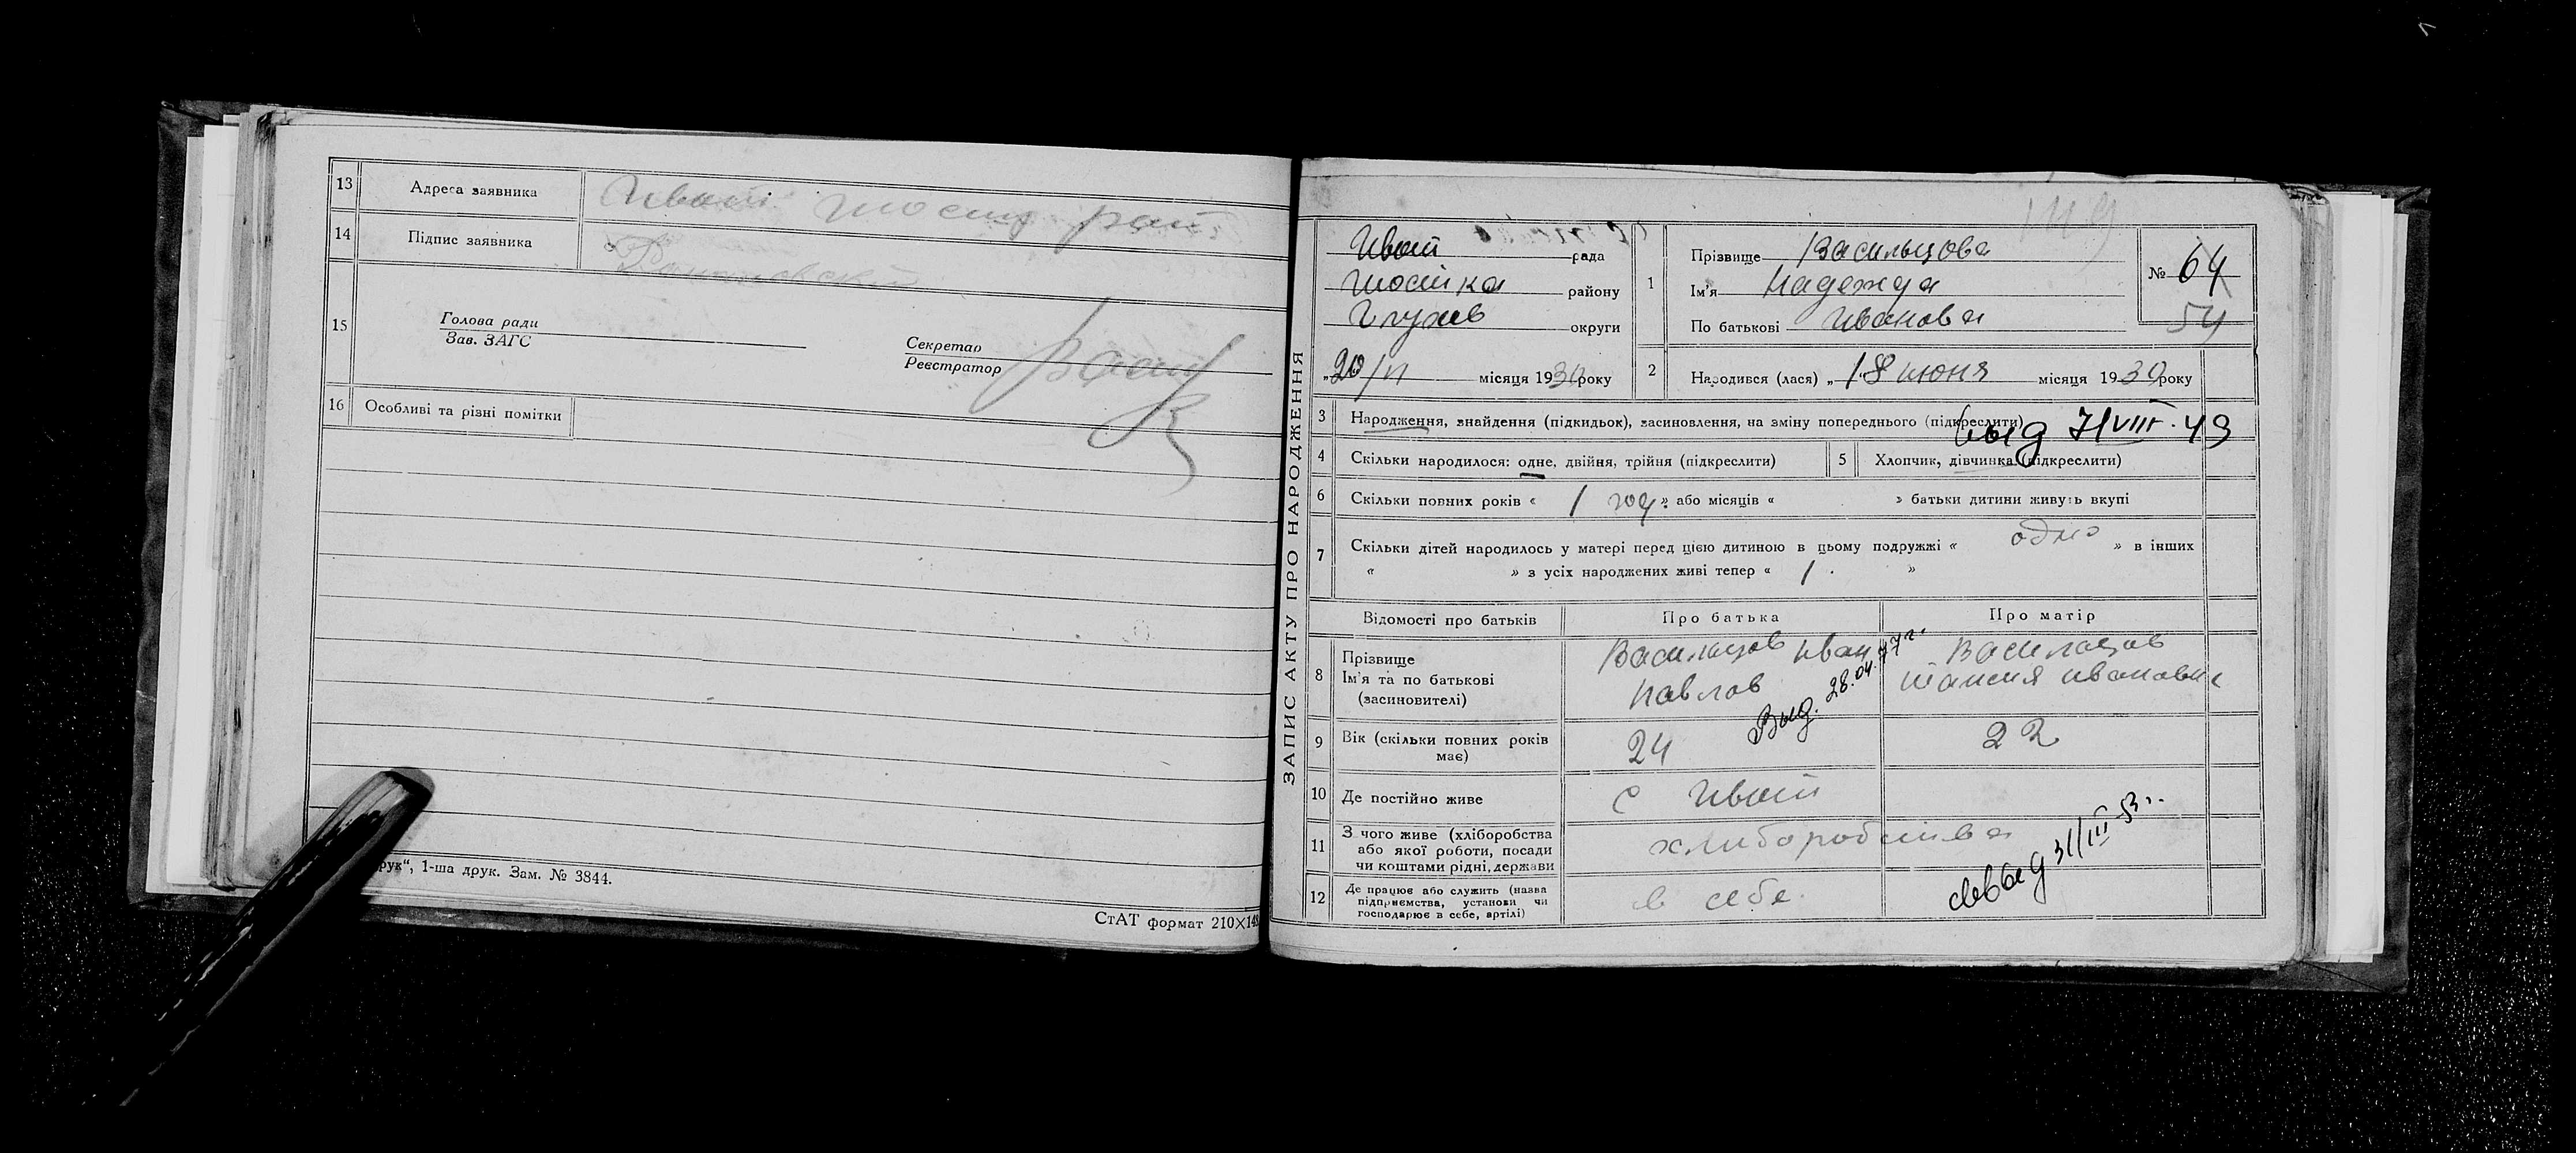 13 Адреса заявника Ивот шостк рай
14 Підпис заявника
15 Голова ради
Зав. ЗАГС
Секретар
Реєстратор
16 Особливі та різні помітки
рук“, 1-ша друк. Зам. № 3844.
СтАТ формат 210×148
ЗАПИС АКТУ ПРО НАРОДЖЕННЯ
Ивот рада
шостка району
Глухів округи
„20/VI місяця 1930 року
1 Прізвище Васильцова
Ім'я Надежда
По батькові Иванова
№ 64
54
2 Народився (лася) „18 июня місяця 1930 року
3 Народження, знайдення (підкидьок), засиновлення, на зміну попереднього (підкреслити)
выд 7/VIII·49
4 Скільки народилося: одне, двійня, трійня (підкреслити)
5 Хлопчик, дівчинка (підкреслити)
6 Скільки повних років « 1 год » або місяців « » батьки дитини живуть вкупі
7 Скільки дітей народилось у матері перед цією дитиною в цьому подружжі « одно » в інших
« » з усіх народжених живі тепер « 1 . »
Відомості про батьків Про батька Про матір
8 Прізвище
Ім'я та по батькові
(засиновителі)
Васильцов Иван
Павлов
Выд. 28.04.77г.
Васильцов
Таисия Ивановна
9 Вік (скільки повних років має) 24 22
10 Де постійно живе с Ивот
11 З чого живе (хліборобства
або якої роботи, посади
чи коштами рідні, держави
хлиборобства
12 Де працює або служить (назва
підприємства, установи чи
господарює в себе, артілі)
в себе.